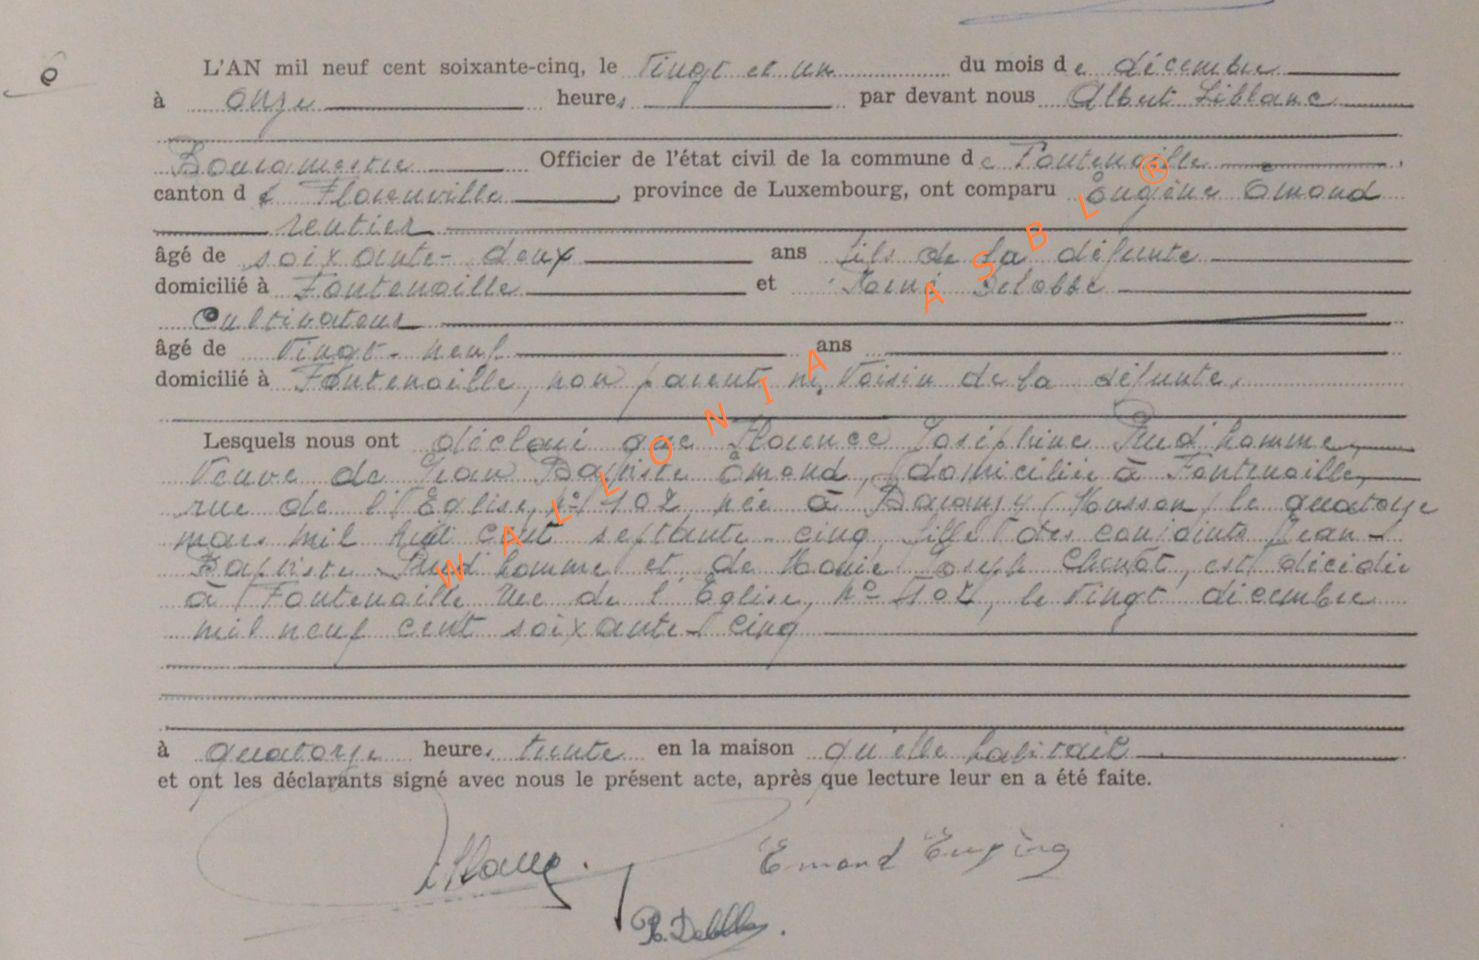 L'AN mil neuf cent soixante-cinq, le vingt et un du mois de décembre
à onze heures par devant nous Albert Leblanc
Bourgmestre Officier de l'état civil de la commune de Fontenoille
canton de Florenville, province de Luxembourg, ont comparu Eugène Emond
rentier
âgé de soixante-deux ans fils de la défunte
domicilié à Fontenoille et René Delobbe
Cultivateur
âgé de vingt-neuf ans
domicilié à Fontenoille, non parent ni voisin de la défunte.
Lesquels nous ont déclaré que Florence Joséphine Prud'homme,
veuve de Jean Baptiste Emond, domiciliée à Fontenoille,
rue de l'Eglise, n° 102, née à Baranzy (Musson) le quatorze
mars mil huit cent septante-cinq, fille des conjoints Jean-
Baptiste Prud'homme et de Marie Joseph Chenot, est décédée
à Fontenoille rue de l'Eglise, n° 102, le vingt décembre
mil neuf cent soixante-cinq
à quatorze heures trente en la maison qu'elle habitait
et ont les déclarants signé avec nous le présent acte, après que lecture leur en a été faite.
Emond Eugène
WALLONIA ASBL ®